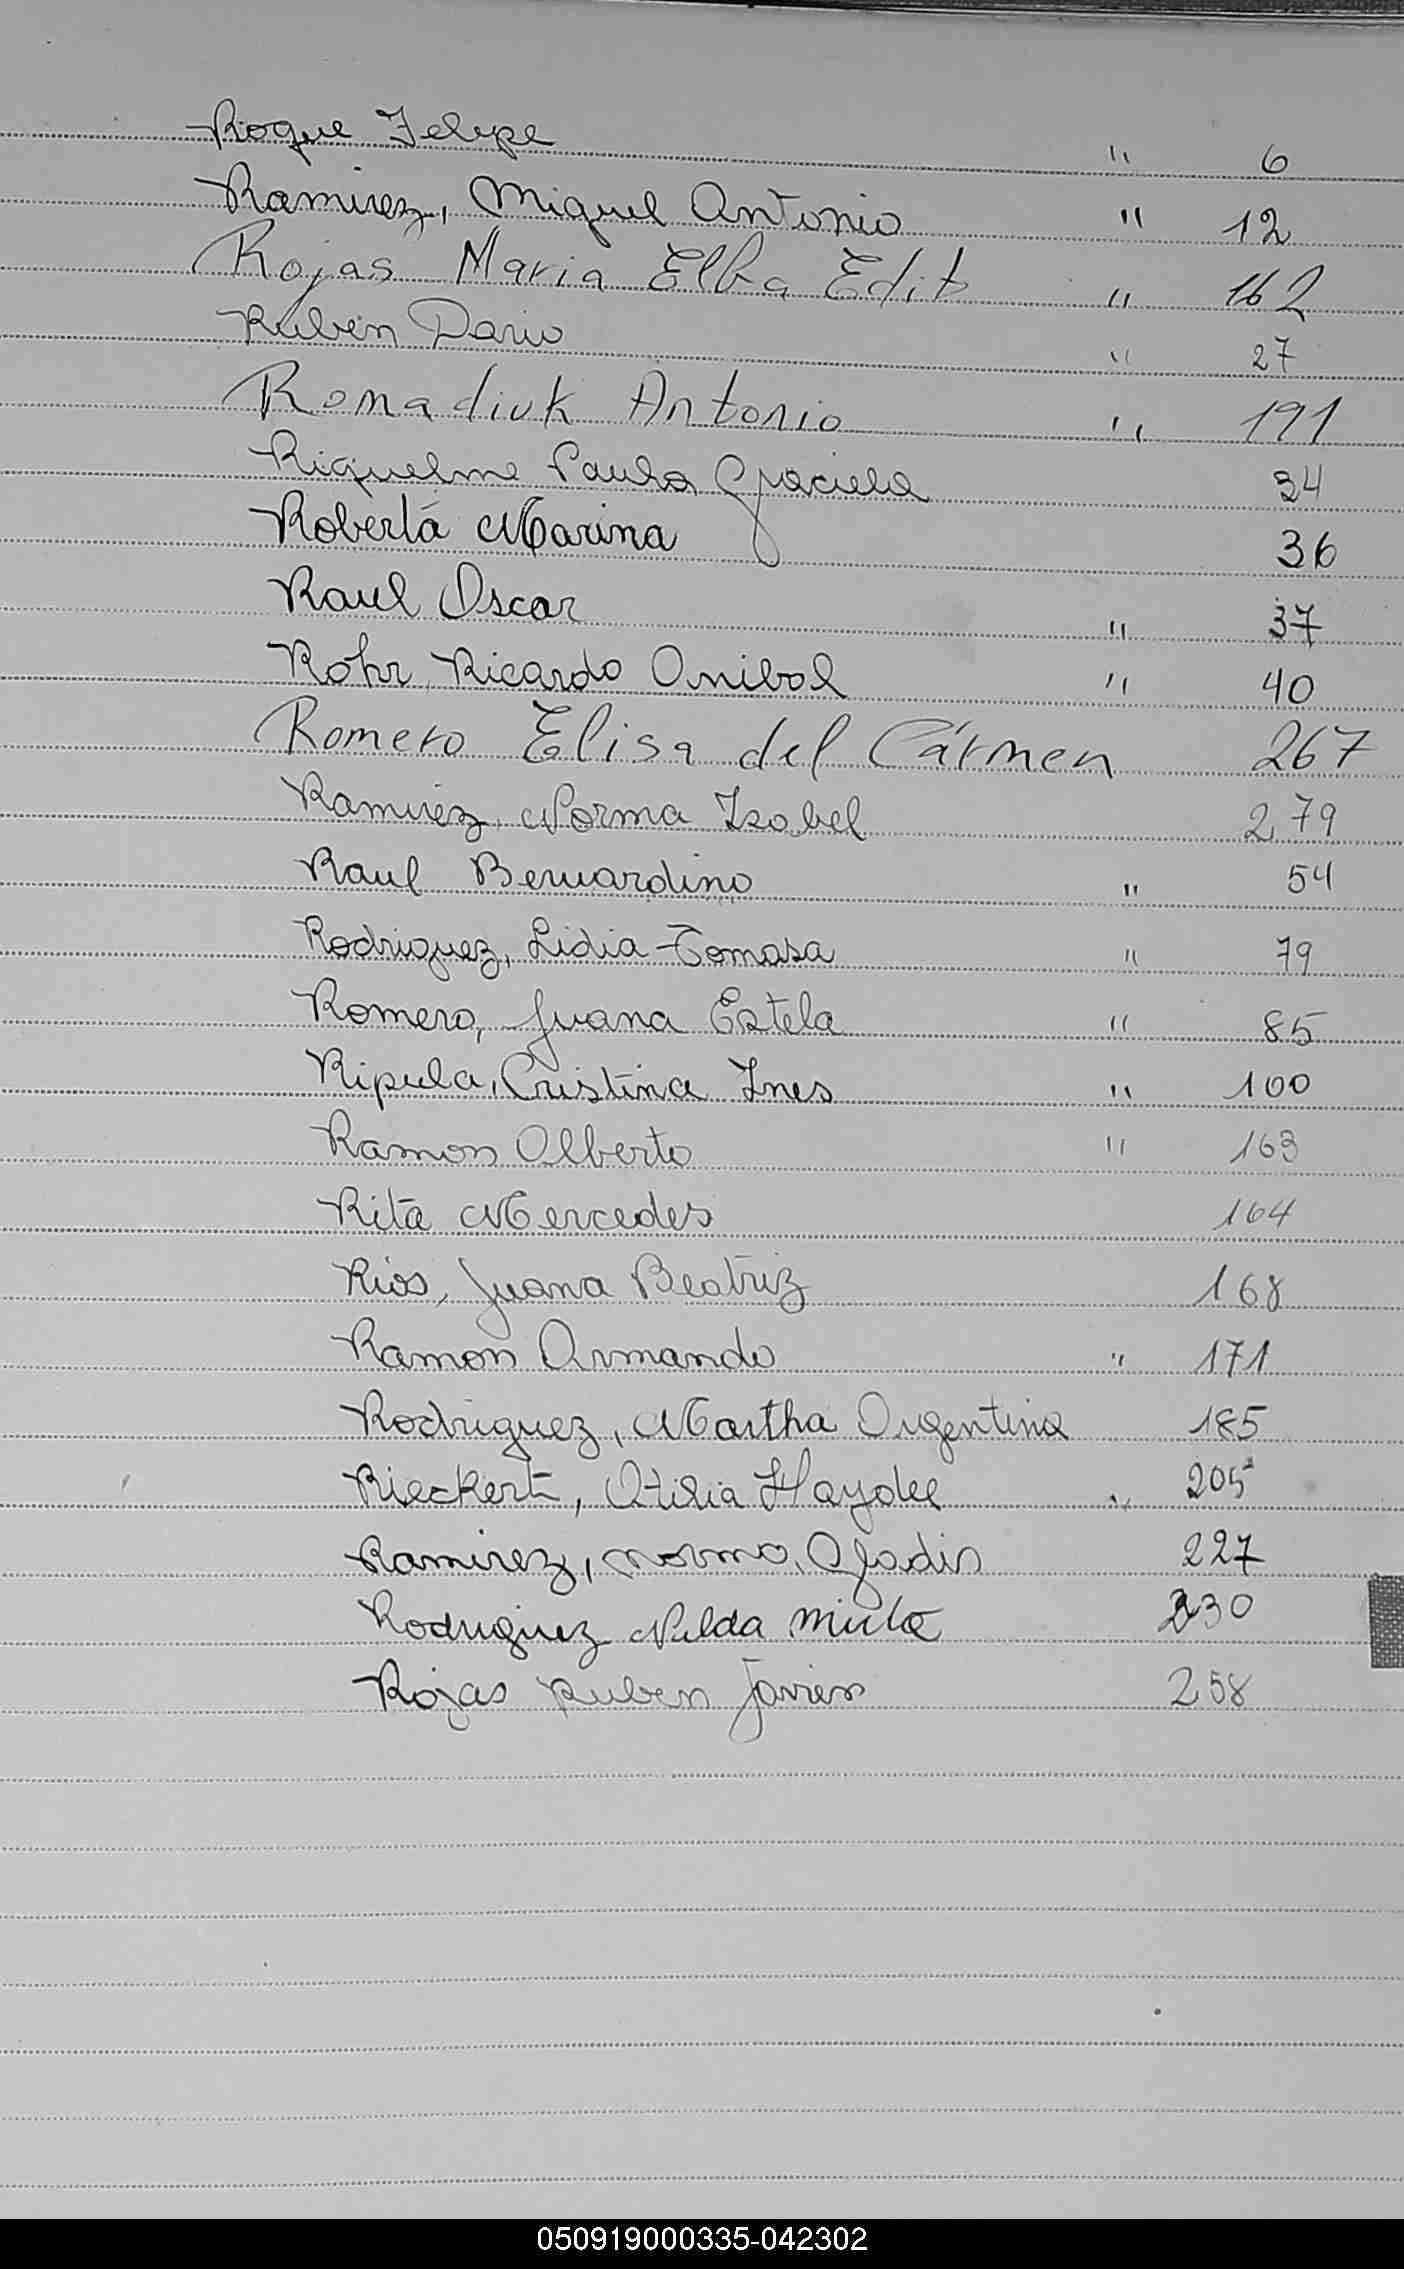 Roque Felipe " 6
Ramirez, Miguel Antonio " 12
Rojas Maria Elba Edit " 162
Ruben Dario " 27
Romadiuk Antonio " 191
Riquelme Paula Graciela 34
Roberta Marina 36
Raul Oscar " 37
Rohr Ricardo Anibal " 40
Romero Elisa del Cármen 267
Ramirez Norma Isabel 279
Raul Bernardino " 54
Rodriguez, Lidia Tomasa " 79
Romero, Juana Estela " 85
Ripula, Cristina Ines " 100
Ramon Alberto " 163
Rita Mercedes 164
Rios, Juana Beatriz 168
Ramon Armando " 171
Rodriguez, Martha Argentina 185
Rieckert, Otilia Haydee " 205
Ramirez, Norma Gladis 227
Rodriguez Nelda Mirta 230
Rojas Ruben Javier 258
050919000335-042302